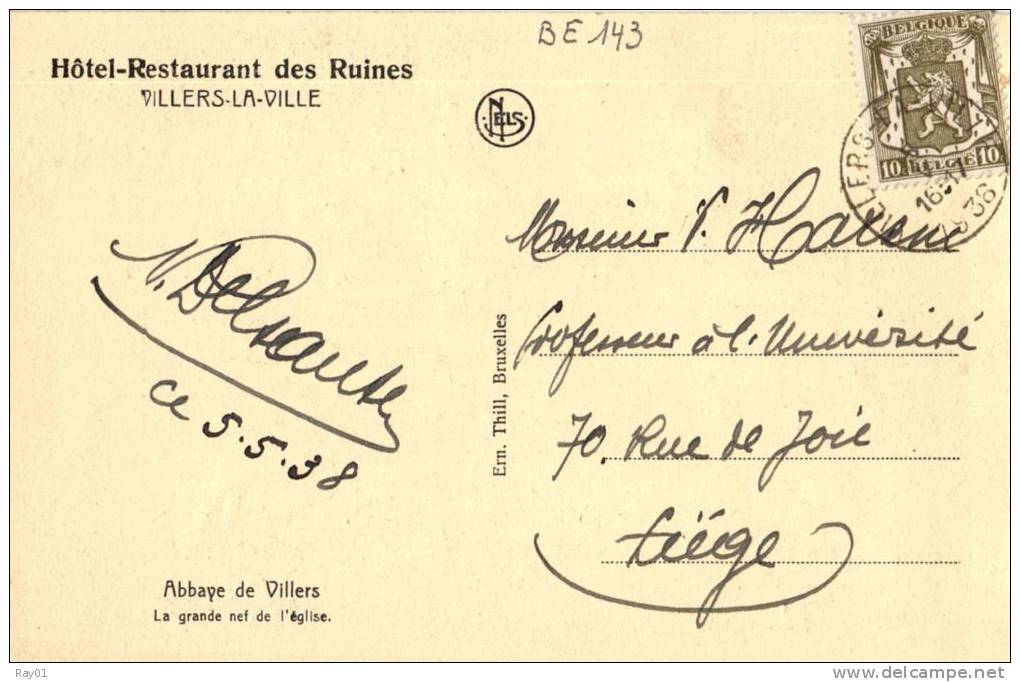 BE 143
Hôtel-Restaurant des Ruines
VILLERS-LA-VILLE
NELS
BELGIQUE
10 BELGIË 10
VILLERS
1938
Monsieur V.
Professeur à l'Université
70, Rue de Joie
Liége
N. Delsaute
ce 5.5.38
Ern. Thill, Bruxelles
Abbaye de Villers
La grande nef de l'église.
Ray01
www.delcampe.net